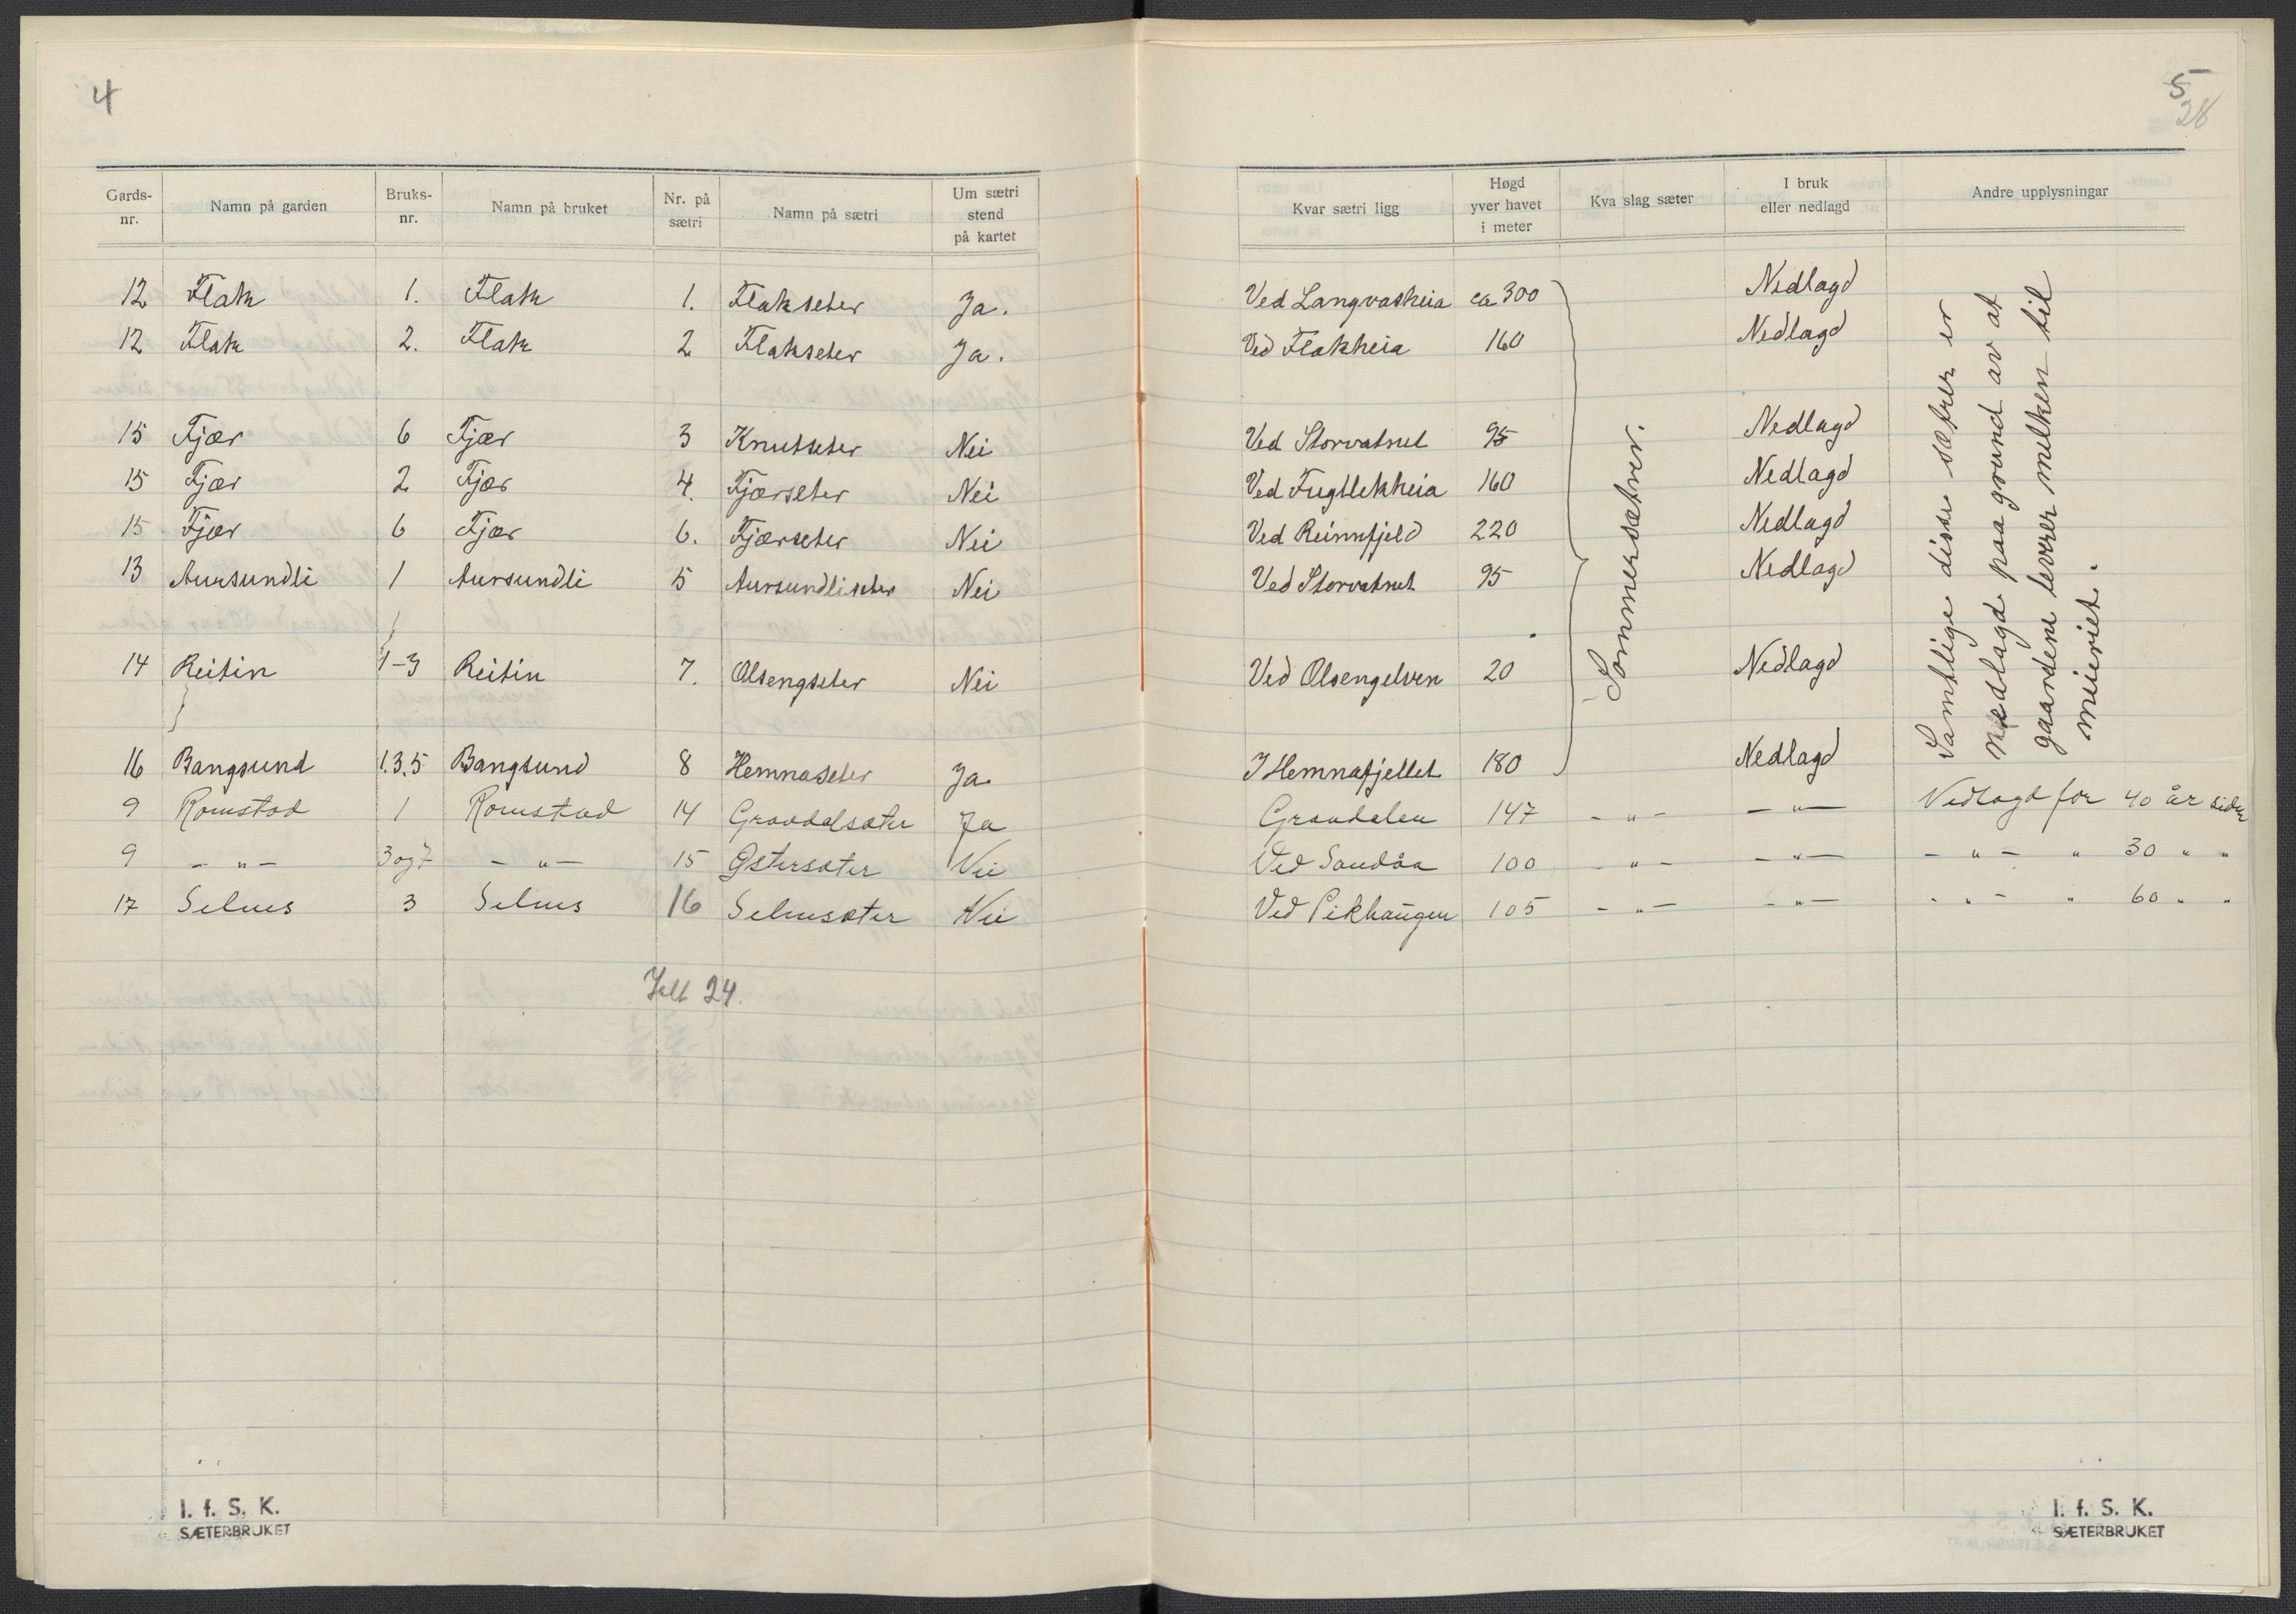 4
5
28
Gards-nr. Namn på garden Bruks-nr. Namn på bruket Nr. på sætri Namn på sætri Um sætri stend på kartet Kvar sætri ligg Høgd yver havet i meter Kva slag sæter I bruk eller nedlagd Andre upplysningar
12 Flak 1. Flak 1. Flakseter Ja. Ved Langvasheia ca 300 Nedlagd
12 Flak 2. Flak 2 Flakseter Ja. Ved Flakheia 160 Nedlagd
15 Fjær 6 Fjær 3 Knutseter Nei Ved Storvatnet 95 Nedlagd
15 Fjær 2 Fjær 4. Fjærseter Nei Ved Fugllekheia 160 Nedlagd
15 Fjær 6 Fjær 6. Fjærseter Nei Ved Reinnfjeld 220 Nedlagd
13 Aursundli 1 Aursundli 5 Aursundliseter Nei Ved Storvatnet 95 Nedlagd
14 Reitin 1-3 Reitin 7. Olsengseter Nei Ved Olsengelven 20 Nedlagd
16 Bangsund 1.3.5 Bangsund 8 Hemnaseter Ja I Hemnafjellet 180 Nedlagd
Sommersætrer.
Samtlige disse sætrer er
nedlagd paa grund av at
gaardene leverer melken til
meieriet.
9 Romstad 1 Romstad 14 Grøndalsæter Ja Grøndalen 147 - " - - " - Nedlagd for 40 år siden
9 - " - 3 og 7 - " - 15 Østersæter Nei Ved Sandåa 100 - " - - " - - " - " 30 " "
17 Selnes 3 Selnes 16 Selnesæter Nei Ved Pikhaugen 105 - " - - " - - " - " 60 " "
Ialt 24.
I. f. S. K.
SÆTERBRUKET
I. f. S. K.
SÆTERBRUKET